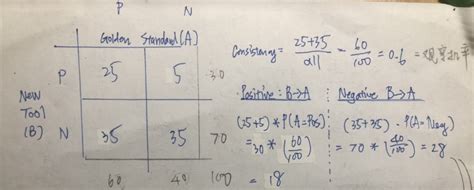 P N
Golden Standard (A)
P 25 5 30
New Tool (B)
N 35 35 70
60 40 100
Consistency = 25+35 / all = 60/100 = 0.6 =
Positive : B→A
(25+5) * P(A=Pos)
= 30 * (60/100)
= 18
Negative B→A
(35+35) - P(A=Neg)
= 70 * (40/100) = 28